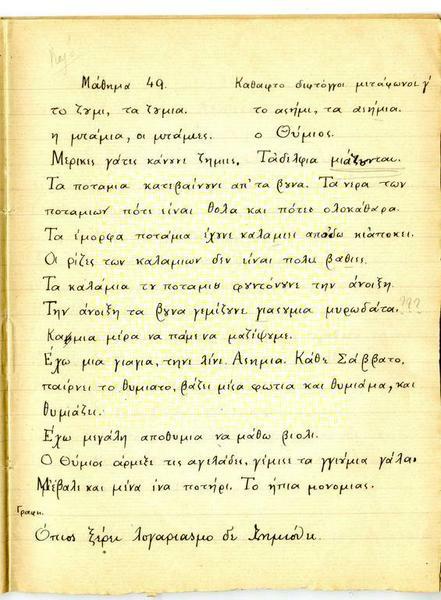 Μάθημα 49. Καθαφτο διφτόγγοι μετάφωνοι γ΄
το ζυμι, τα ζυμια. το ασήμι, τα ασήμια.
η μπάμια, οι μπάμιες. ο Θύμιος.
Μερικες γάτες κάνυνε ζημιες. Ταδέλφια μιάζυνται.
Τα ποταμια κατεβαίνυνε απ'τα βυνα. Τα νερα των
ποταμιων πότε είναι θολα και πότες ολοκάθαρα.
Τα έμορφα ποτάμια έχυνε καλαμιες αποδω κιαποκει.
Οι ρίζες των καλαμιων δεν είναι πολυ βαθιες.
Τα καλάμια τυ ποταμυ φυντόνυνε την άνοιξη.
Την άνοιξη τα βυνα γεμίζυνε γιασυμια μυρωδάτα. ???
Καμια μέρα να πάμενα μαζέψυμε.
Έχω μια γιαγια, τηνε λένε. Ασημια. Κάθε Σάββατο,
παίρνει το θυμιατο, βάζει μέσα φωτια και θυμιάμα, και
θυμιάζει.
Έχω μεγάλη αποθυμια να μάθω βιολι.
Ο Θύμιος άρμεξε τις αγελάδες, γέμισε τα γγιύμια γάλα.
Μέβαλε και μένα ένα ποτήρι. Το ήπια μονομιας.
Γραφη.
Όπιος ξέρει λογαριασμο δε ζημιόνει.